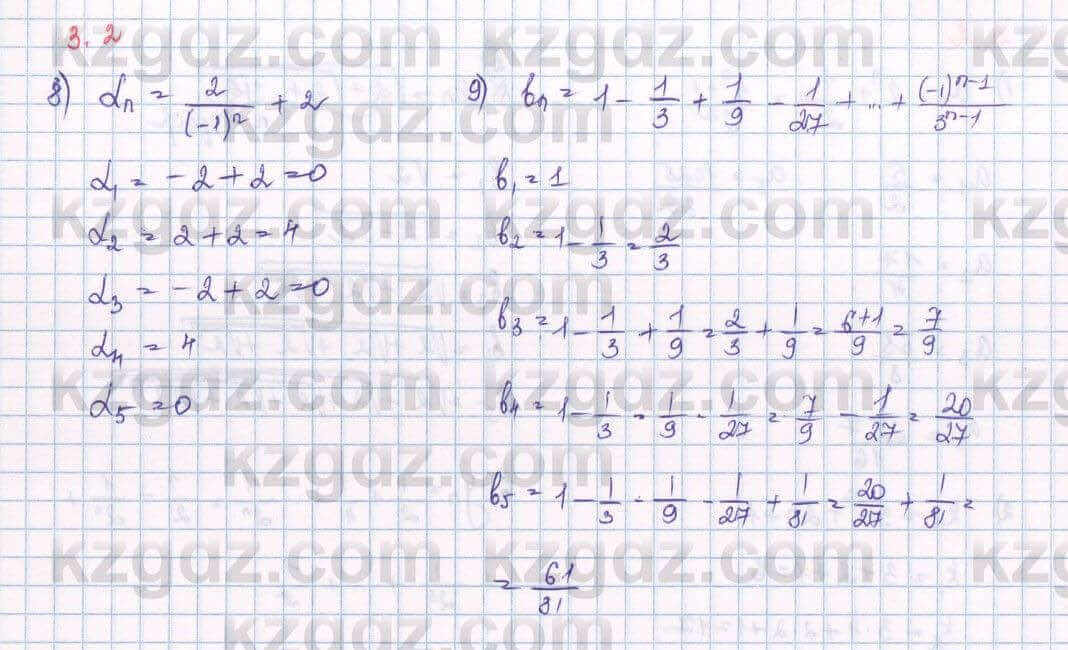 3.2
8) αₙ = 2/(-1)ⁿ + 2
α₁ = -2+2=0
α₂ = 2+2=4
α₃ = -2+2=0
α₄ = 4
α₅ = 0
9) bₙ = 1 - 1/3 + 1/9 - 1/27 + ... + (-1)ⁿ⁻¹/3ⁿ⁻¹
b₁ = 1
b₂ = 1 - 1/3 = 2/3
b₃ = 1 - 1/3 + 1/9 = 2/3 + 1/9 = 6+1/9 = 7/9
b₄ = 1 - 1/3 - 1/9 - 1/27 = 7/9 - 1/27 = 20/27
b₅ = 1 - 1/3 - 1/9 - 1/27 + 1/81 = 20/27 + 1/81 =
= 61/81
kzgdz.com